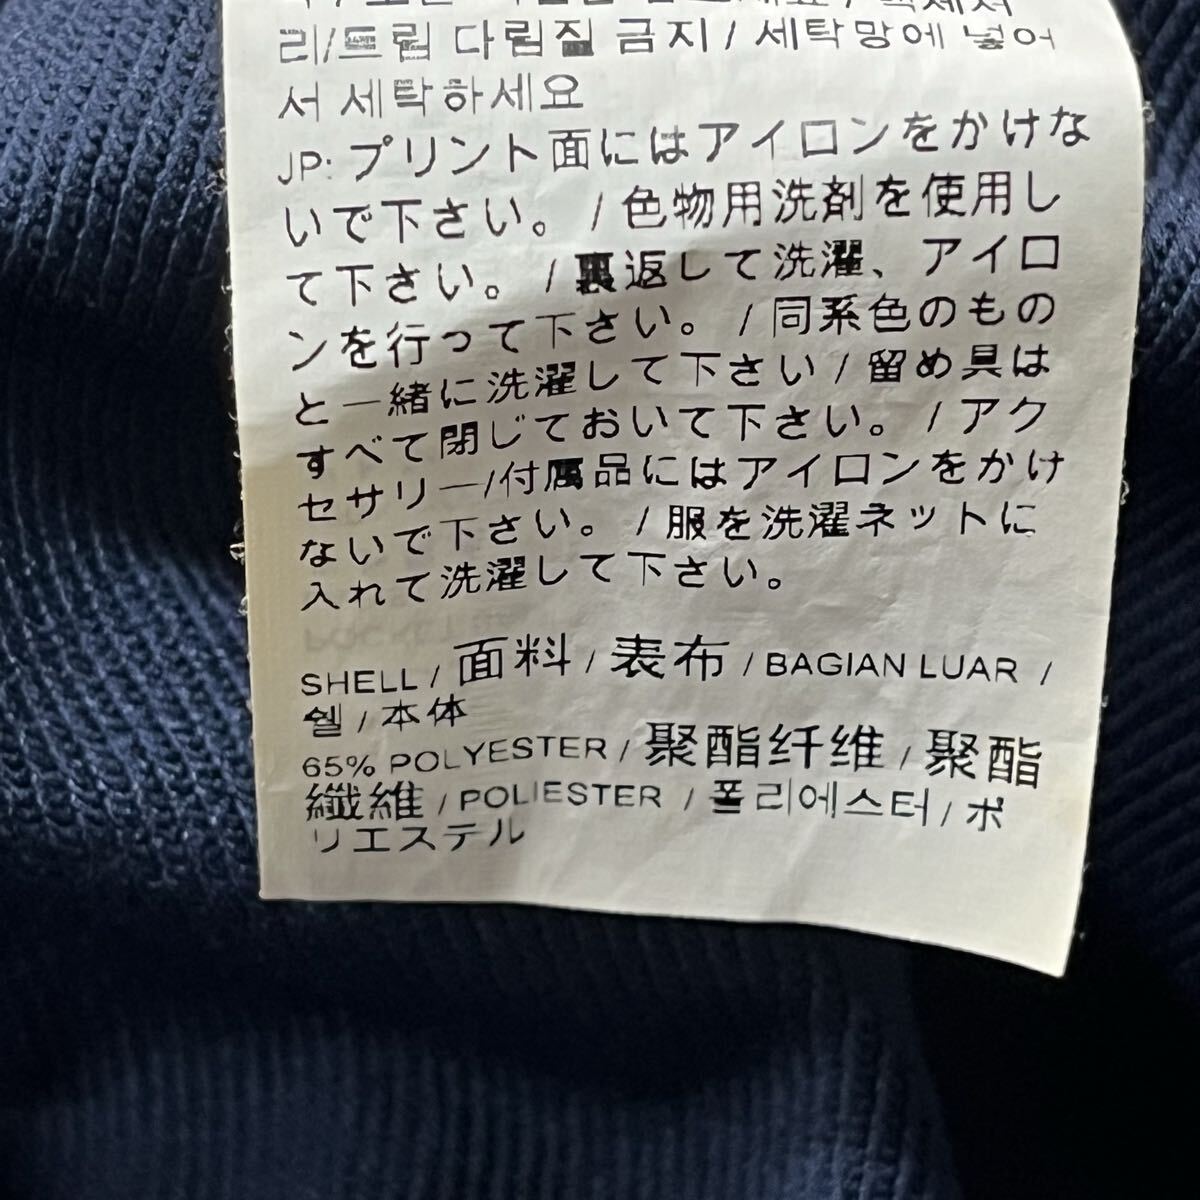 리/드립 다림질 금지 / 세탁망에 넣어
서 세탁하세요
JP: プリント面にはアイロンをかけな
いで下さい。/ 色物用洗剤を使用し
て下さい。/ 裏返して洗濯、アイロ
ンを行って下さい。/ 同系色のもの
と一緒に洗濯して下さい / 留め具は
すべて閉じておいて下さい。/ アク
セサリー/付属品にはアイロンをかけ
ないで下さい。/ 服を洗濯ネットに
入れて洗濯して下さい。
SHELL / 面料 / 表布 / BAGIAN LUAR /
쉘 / 本体
65% POLYESTER / 聚酯纤维 / 聚酯
纖維 / POLIESTER / 폴리에스터 / ポ
リエステル